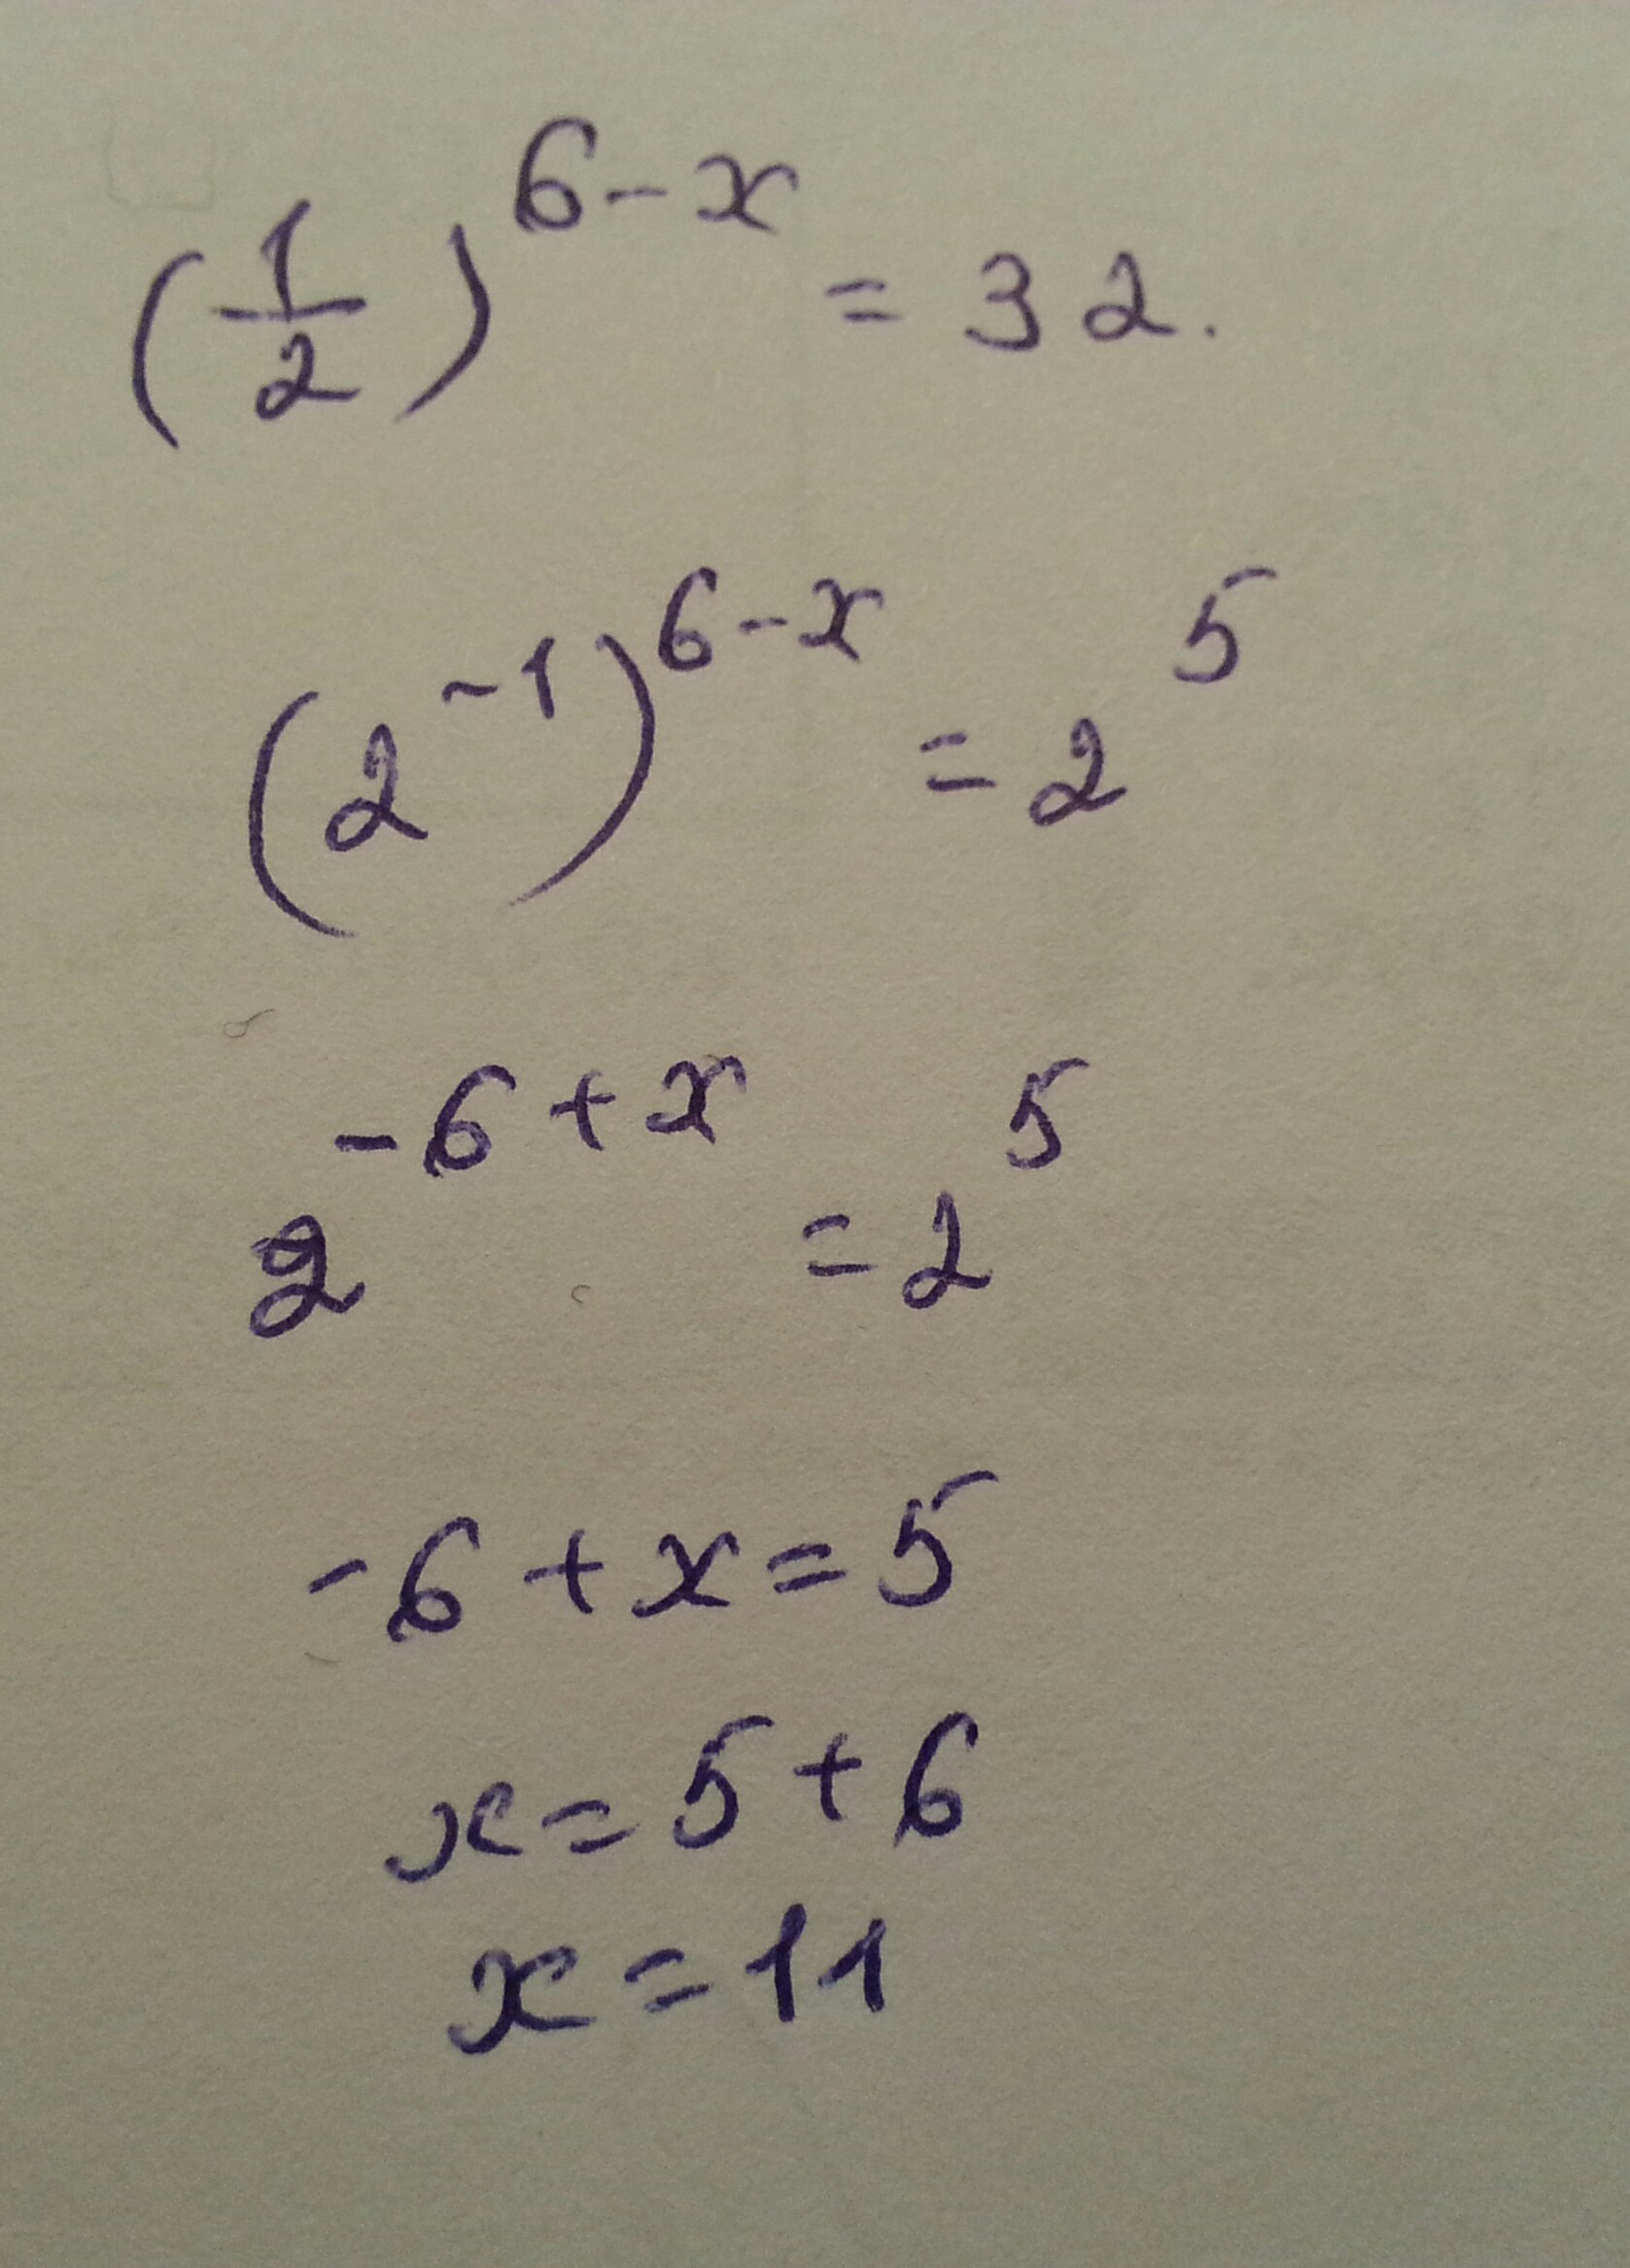 (1/2)^6-x = 32.
(2^-1)^6-x = 2^5
2^-6+x = 2^5
-6+x=5
x=5+6
x=11